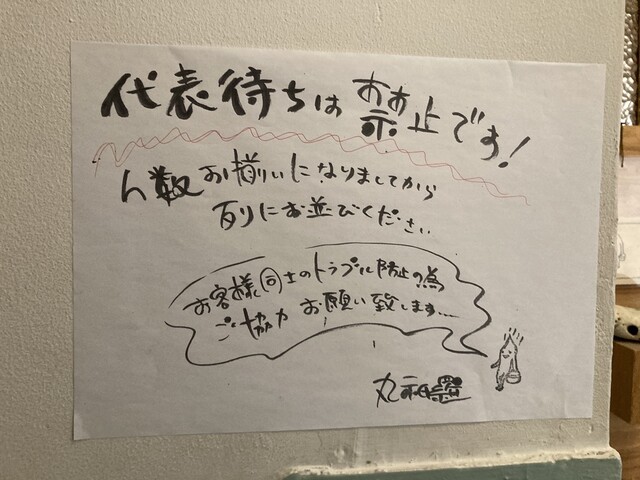 代表待ちは禁止です!
人数お揃いになりましてから
列にお並びください
お客様同士のトラブル防止の為
ご協力お願い致します…